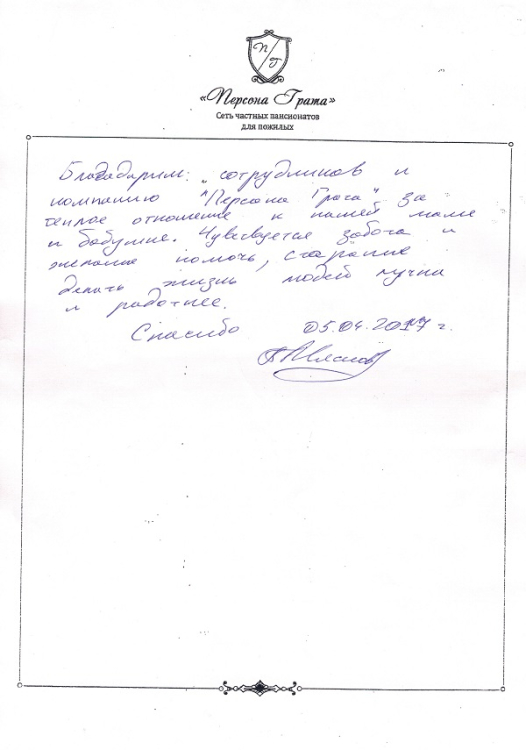 П
Г
«Персона Грата»
Сеть частных пансионатов
для пожилых
Благодарим: сотрудников и
компанию "Персона Грата" за
теплое отношение к нашей маме
и бабушке. Чувсвуется забота и
желание помочь, старание
делать жизнь людей
и радостнее.
Спасибо 05.04.2017 г.